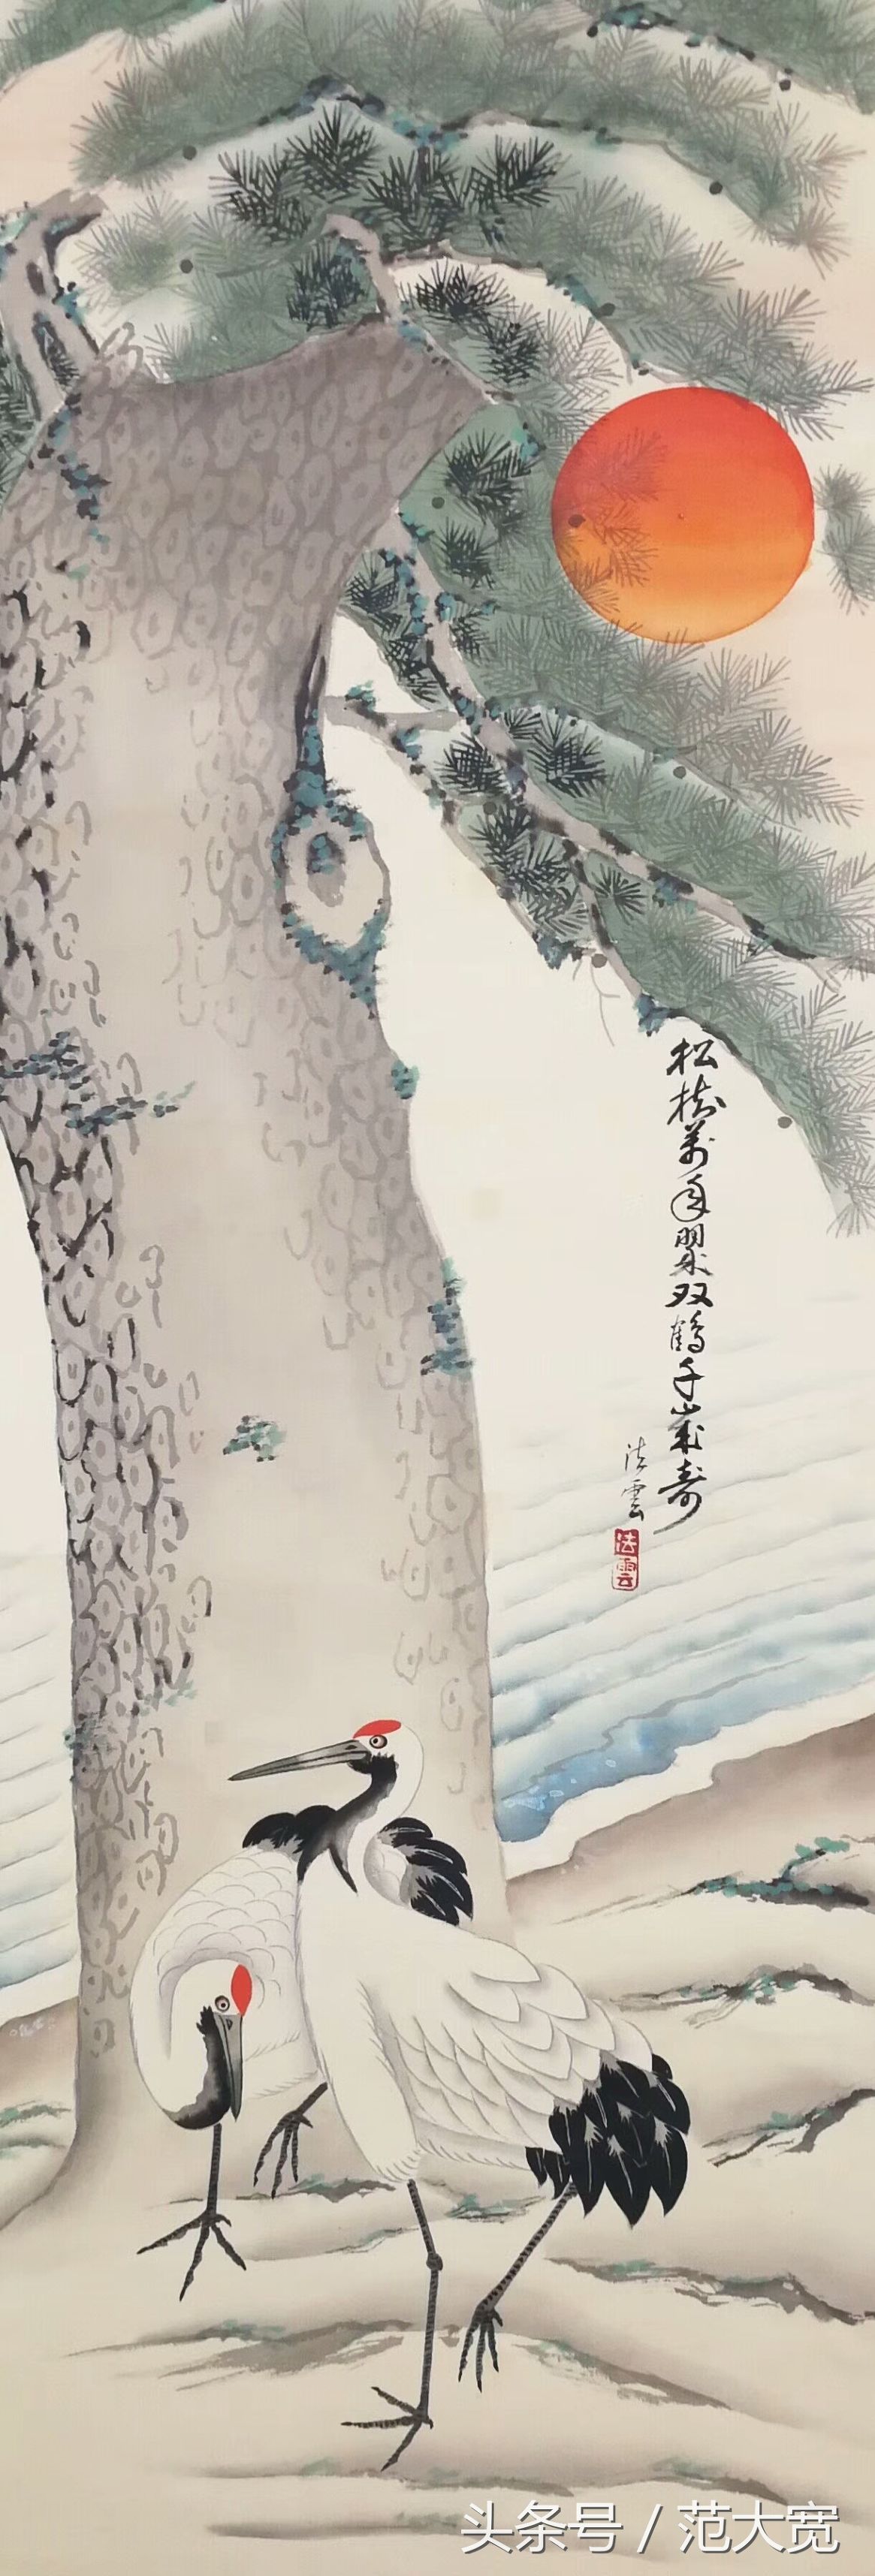 松树萬年翠双鹤千嵗寿
法雲
法雲
头条号 / 范大宽